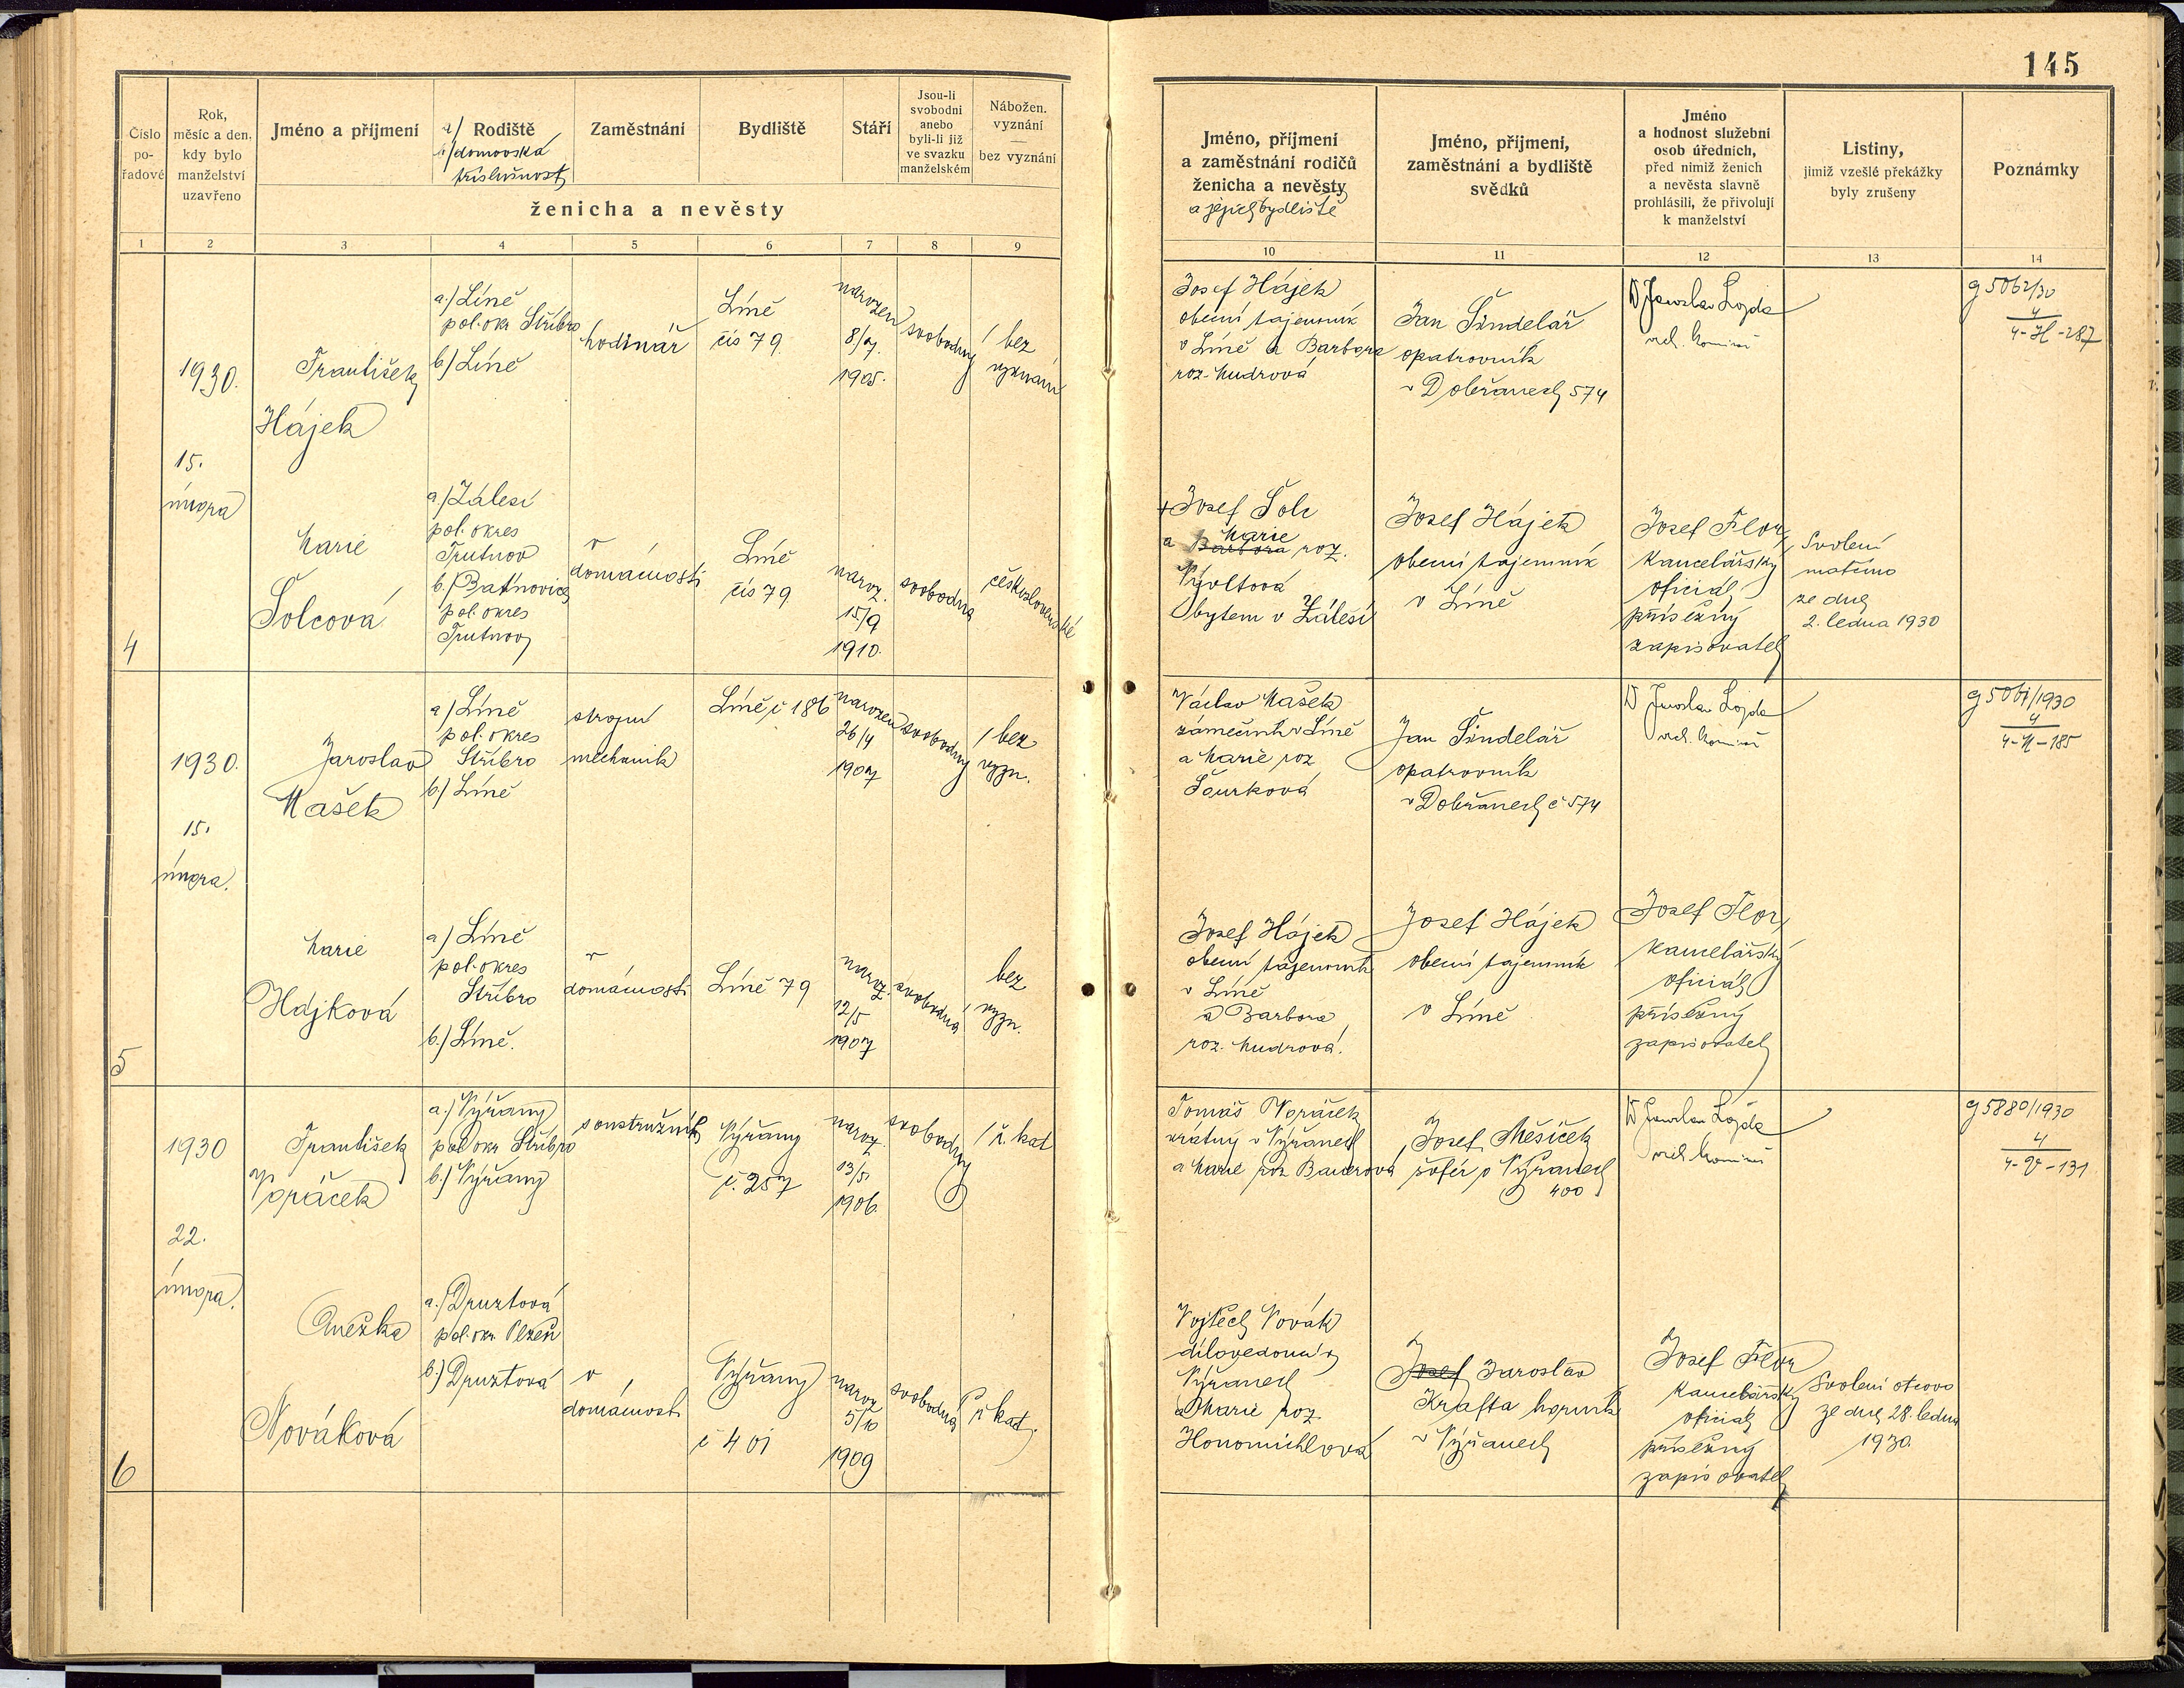 145
Číslo
po-
řadové
Rok,
měsíc a den,
kdy bylo
manželství
uzavřeno
Jméno a příjmení
a/ Rodiště
b/ domovská
příslušnost
Zaměstnání
Bydliště
Stáří
Jsou-li
svobodni
anebo
byli-li již
ve svazku
manželském
Nábožen.
vyznání
bez vyznání
ženicha a nevěsty
1 2 3 4 5 6 7 8 9
Jméno, příjmení
a zaměstnání rodičů
ženicha a nevěsty
a jejich bydliště
Jméno, příjmení,
zaměstnání a bydliště
svědků
Jméno
a hodnost služební
osob úředních,
před nimiž ženich
a nevěsta slavně
prohlásili, že přivolují
k manželství
Listiny,
jimiž vzešlé překážky
byly zrušeny
Poznámky
10 11 12 13 14
4
1930.
15.
února
František
Hájek
a.) Líně
pol. okr Stříbro
b.) Líně
hodinář
Líně
čís 79
narozen
8/7.
1905.
svobodný
bez
vyznání
Josef Hájek
obecní tajemník
v Líně a Barbora
roz. Mudrová
Jan Šindelář
opatrovník
v Dobřanech 574
Dr Jaroslav Lojda
g 5062/30
4
4-H-287
Marie
Šolcová
a.) Zálesí
pol. okres
Trutnov
b.) Batňovice
pol. okres
Trutnov
v
domácnosti
Líně
čís 79
naroz.
15/9
1910.
svobodna
československé
+ Josef Šolc
Marie
a Barbora roz.
bytem v Zálesí
Josef Hájek
obecní tajemník
v Líně
Josef Flor
kancelářský
oficiál
přísežný
zapisovatel
Svolení
ze dne
2. ledna 1930
5
1930.
15.
února.
Jaroslav
Mašek
a.) Líně
pol. okres
Stříbro
b.) Líně
strojní
mechanik
Líně č 186
narozen
26/4
1907
svobodný
bez
vyzn.
Václav Mašek
zámečník v Líně
a Marie roz
Šourková
Jan Šindelář
opatrovník
v Dobřanech č 574
Dr Jaroslav Lojda
g 5061/1930
4
4-M-185
Marie
Hájková
a.) Líně
pol. okres
Stříbro
b.) Líně.
v
domácnosti
Líně 79
naroz.
12/5
1907
svobodná
bez
vyzn.
Josef Hájek
obecní tajemník
v Líně
a Barbora
roz. Mudrová.
Josef Hájek
obecní tajemník
v Líně
Josef Flor
kancelářský
oficiál
přísežný
zapisovatel
6
1930
22.
února.
František
Voráček
a.) Nýřany
pol okr Stříbro
b.) Nýřany
soustružník
Nýřany
č. 257
naroz.
13/5.
1906.
svobodný
ř. kat
Tomáš Voráček
vrátný v Nýřanech
a Marie roz Bauerová
Josef Měsíček
šofér v Nýřanech
400
Dr Jaroslav Lojda
g 5880/1930
4
4-V-131
Anežka
Nováková
a.) Druztová
pol. okr. Plzeň
b.) Druztová
v
domácnosti
Nýřany
č 401
naroz
5/10
1909
svobodná
ř kat.
Vojtěch Novák
dílovedoucí v
Nýřanech
a Marie roz.
Honomichlová
Josef Jaroslav
Krafta horník
v Nýřanech
Josef Flor
kancelářský
oficiál
přísežný
zapisovatel
Svolení otcovo
ze dne 28. ledna
1930.